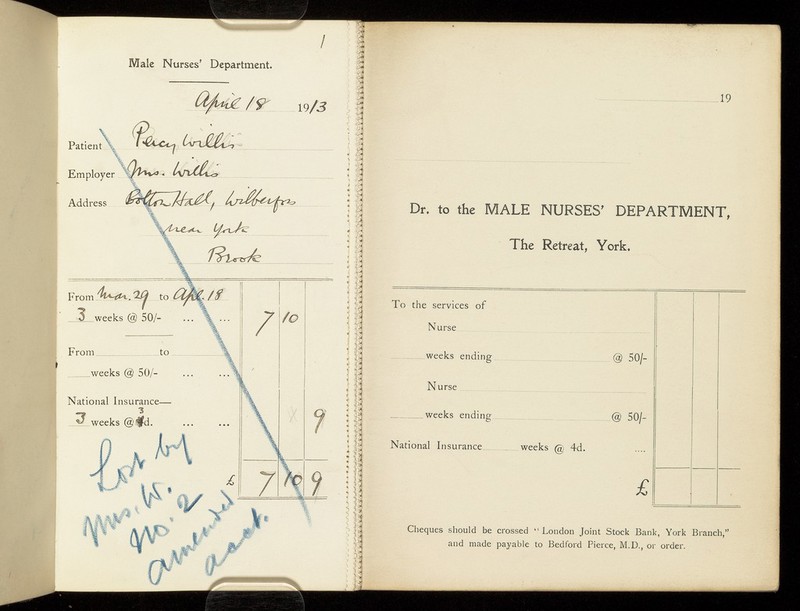 1
Male Nurses' Department.
April 18 1913
Patient Percy Willis
Employer Mrs. Willis
Address Bolton Hall, Wilberfoss
near York
Brook
From Mar. 29 to Apl. 18
3 weeks @ 50/- ... ... 7 10
From to
weeks @ 50/- ... ...
National Insurance—
3 weeks @ 3d. ... ... 9
£ 7 10 9
Lost by
Mrs. W.
No. 2
amended
acct.
19
Dr. to the MALE NURSES' DEPARTMENT,
The Retreat, York.
To the services of
Nurse
weeks ending @ 50/-
Nurse
weeks ending @ 50/-
National Insurance weeks @ 4d. ....
£
Cheques should be crossed "London Joint Stock Bank, York Branch,"
and made payable to Bedford Pierce, M.D., or order.